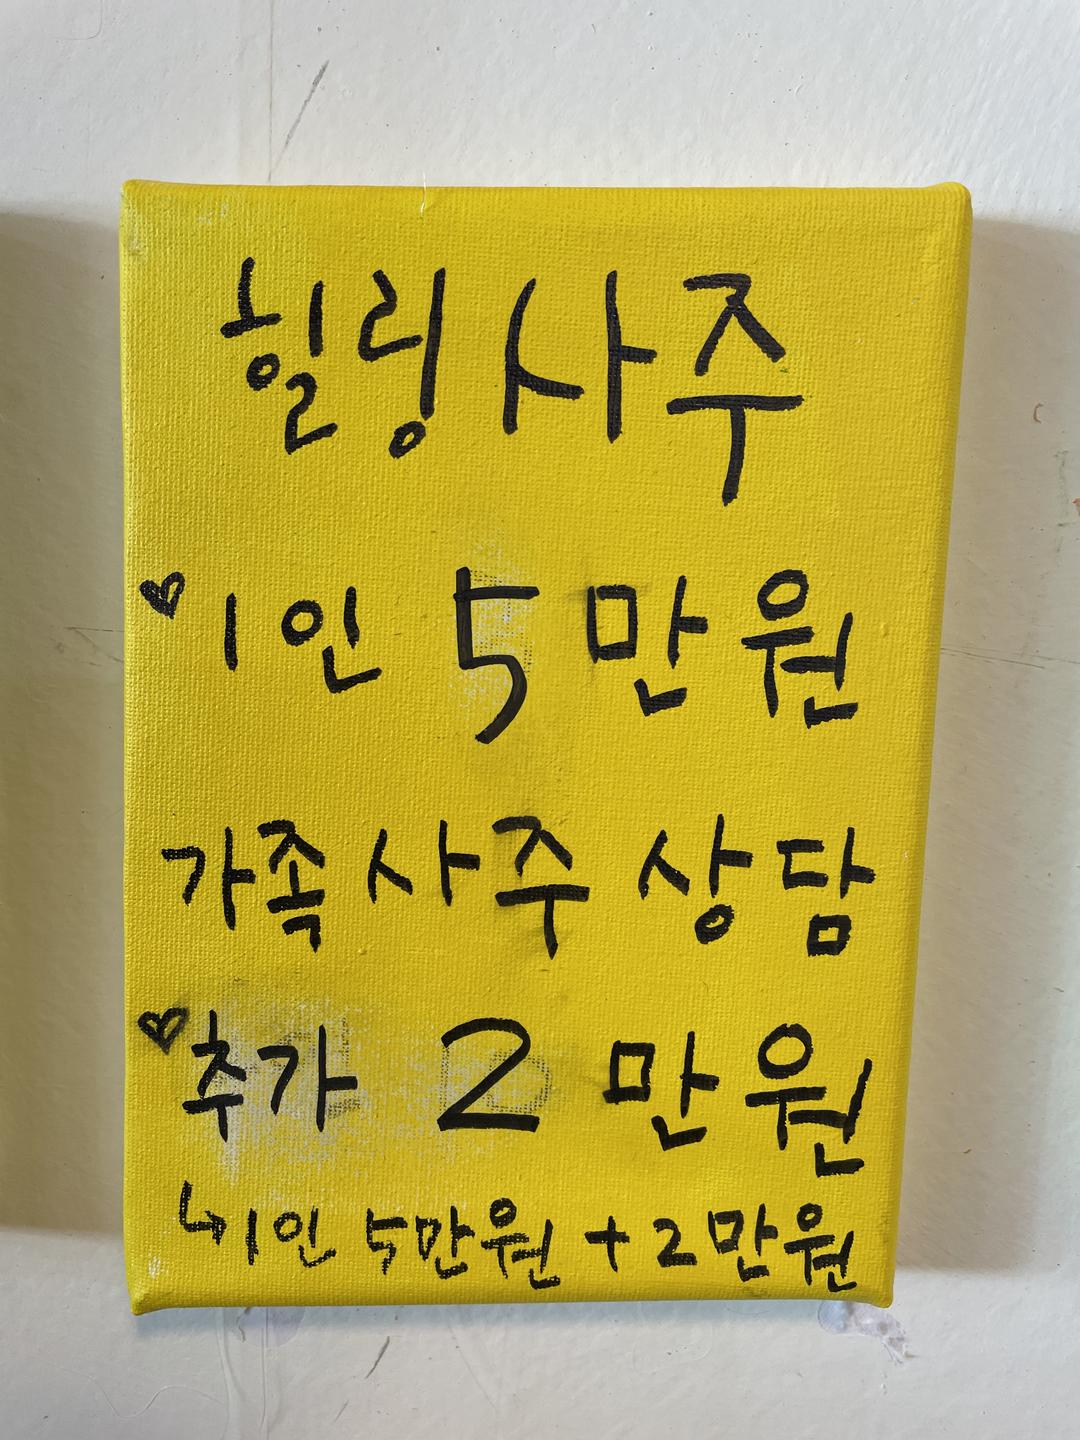 힐링사주
♥1인 5만원
가족사주 상담
♥추가 2만원
↳1인 5만원 + 2만원